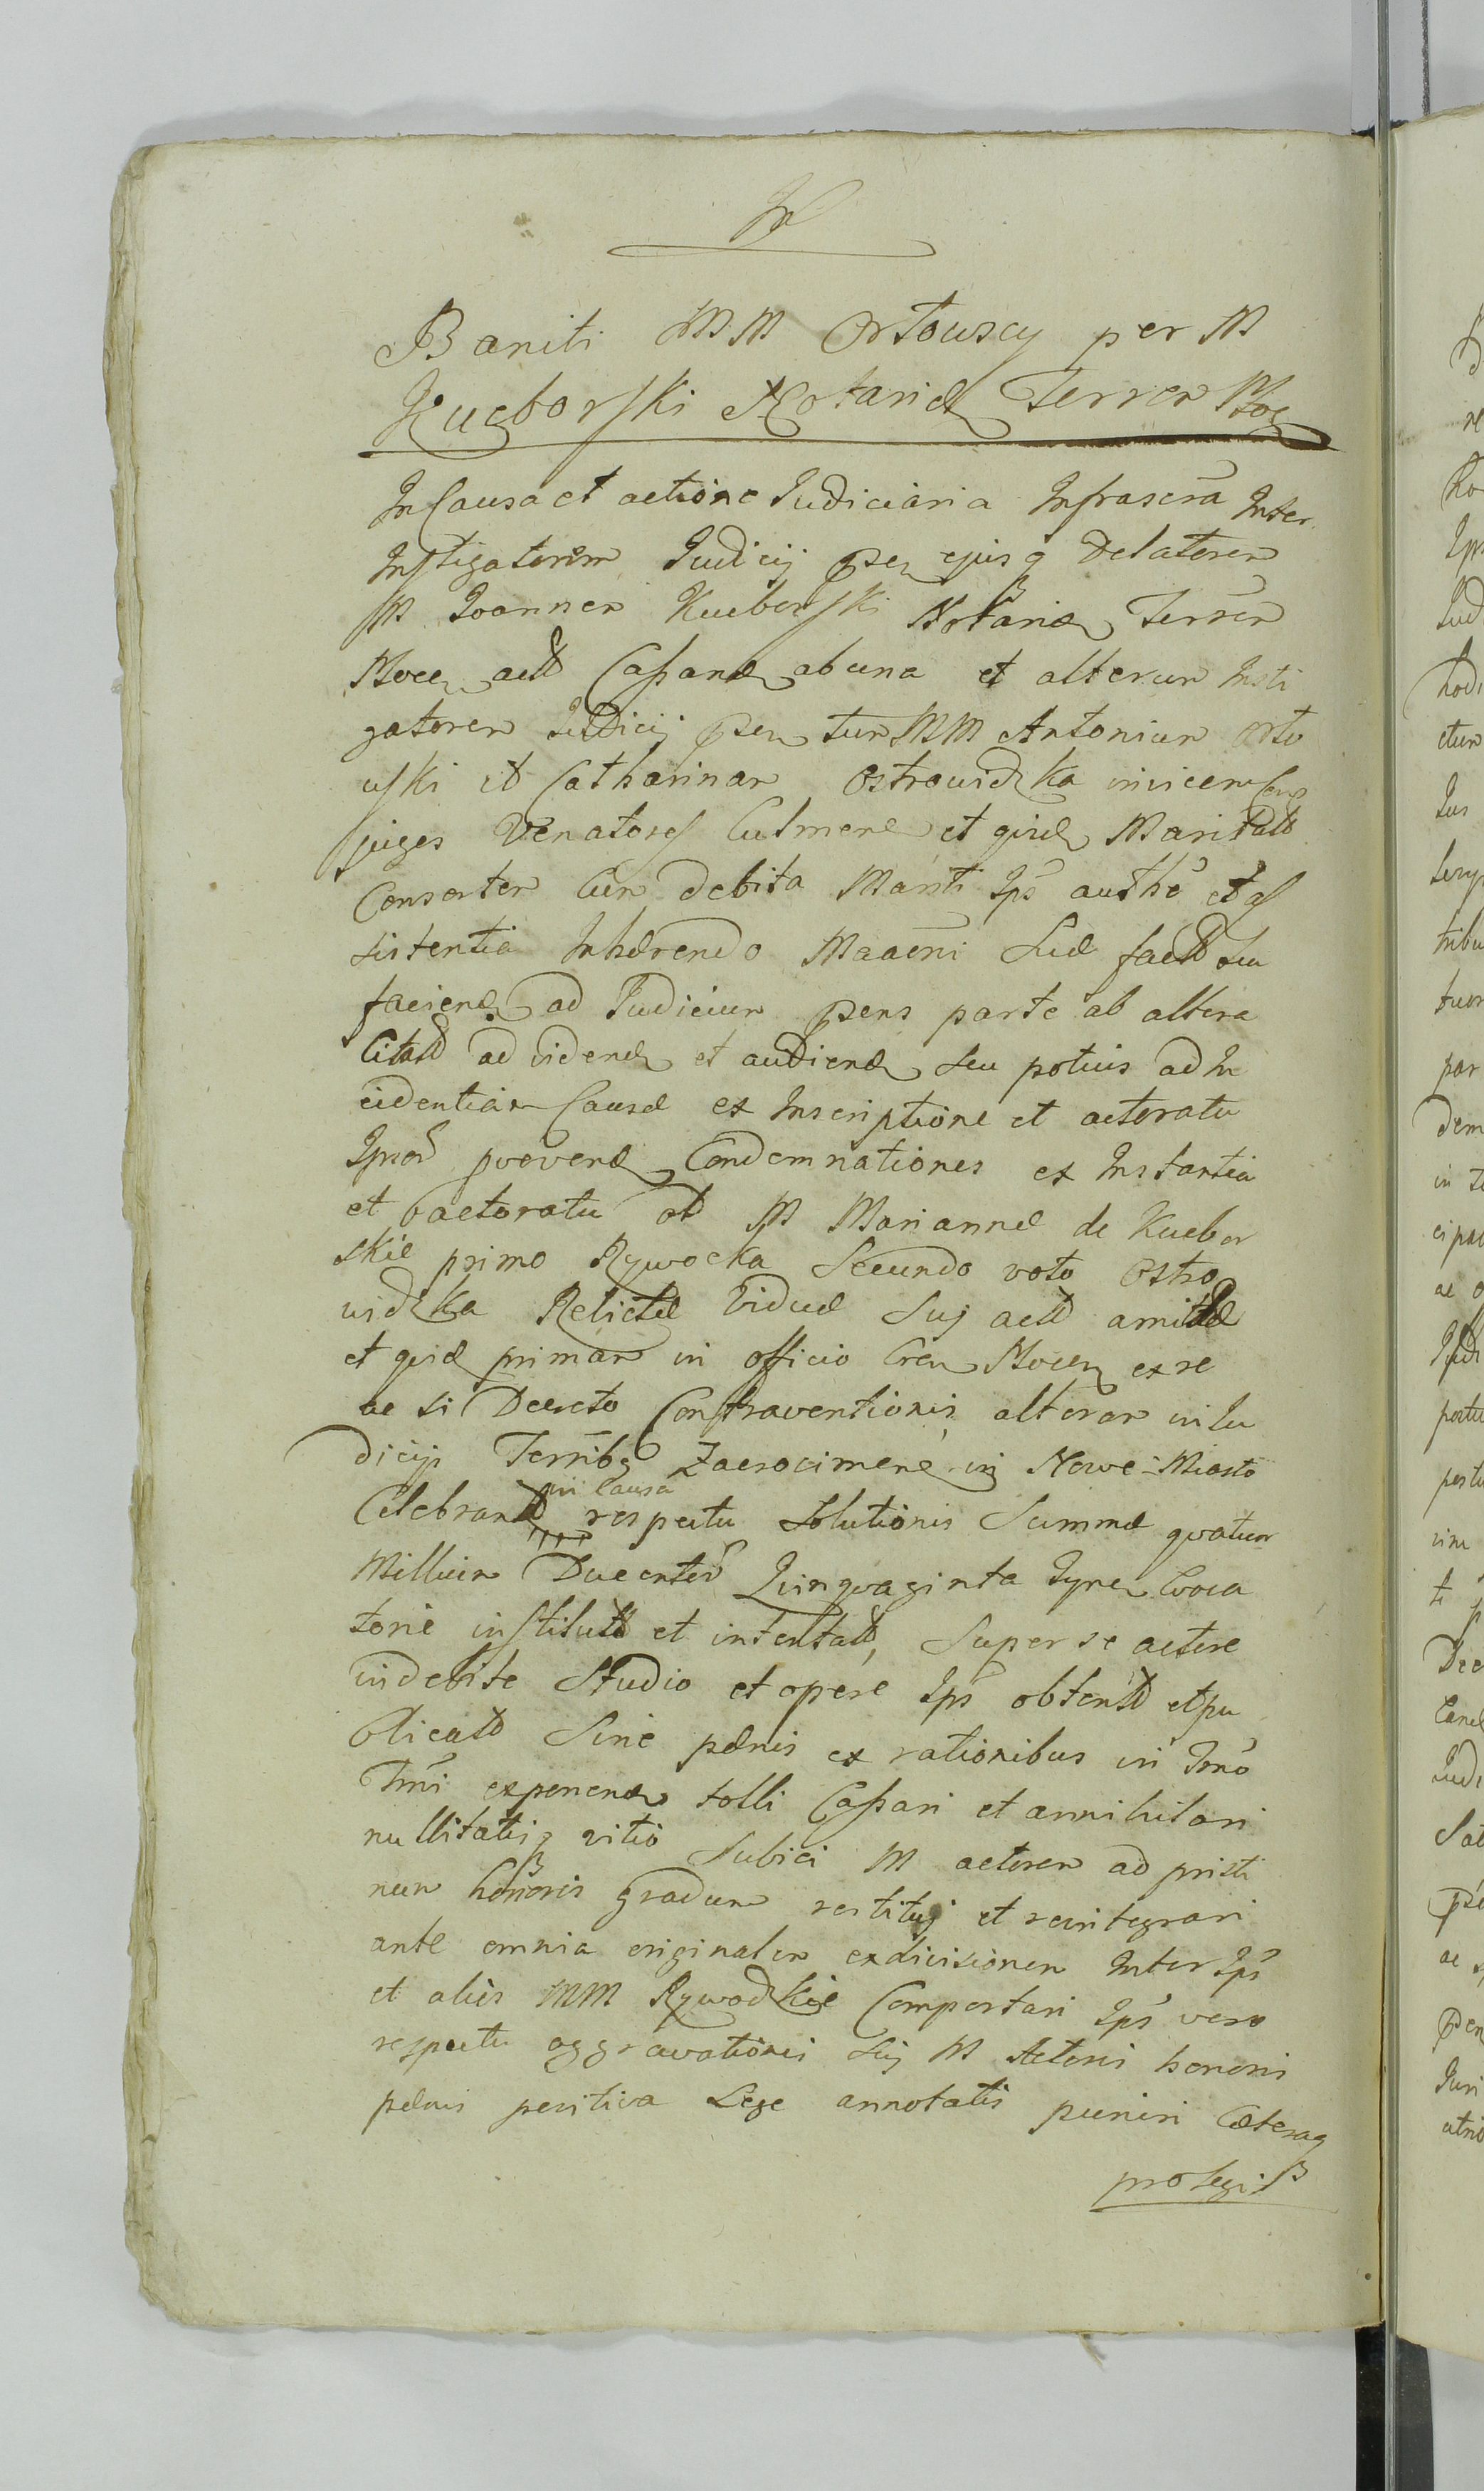 Baniti MM Ortowscy per M
Kucborski Notariũ Terren Ploc
In Causa et actione Judiciaria Infrascrã Inter
Instigatorem Judicij psen ejusq Delatorem
M Joannem Kucborski Notariũ Terren
Plocen act Cassand ab una et alterum Insti
gatorem Judicij psen tum MM Antonium Orto
wski et Catharinam Ostrowidzka invicem Con
juges Venatores Culmenẽ et quid Maritatt
Consortem Cum debita Mariti Ips authẽ et as
sistentia Inhærendo Sua fact seu
faciend ad Judicium psens parte ab altera
Citatt ad vidend et audiend seu potius ad In
cidentiam Causæ ex Inscriptione et actoratu
Ipsor proveniend Condemnationes ex Instantia
et actoratu olt M Mariannæ de Kucbor
skie primo Rywocka Secundo voto Ostro
widzka Relictæ Viduæ Suj act amittæ
et quid primam in officio Cren Plocen ex re
ac si Decreto Contraventionis alteram in Ju
dicijs Terribg Zacrocimenẽ in Nowe-Miasto
Celebrantt in Causa respectu Solutionis Summæ qvatuor
Millium Ducentor Quinqvaginta Tynen Evoca
torie institutt et intentatt, Super se actore
indebite Studio et opere Ips obtentt et pu
blicatt Sine pænis ex rationibus in Tmõ
Tmi exponend tolli Cassari et annihilari
nullitatisq vitio Subici M actorem ad pristi
num honoris gradum restituj et reintegrari
ante omnia originalem exdivisionem Inter Ips
et alies MM Rywodzkie Comportari Ips vero
respectu aggravationis Suj M Actoris honoris
pænis positiva Lege annotatis puniri Cæteraq
pro legis